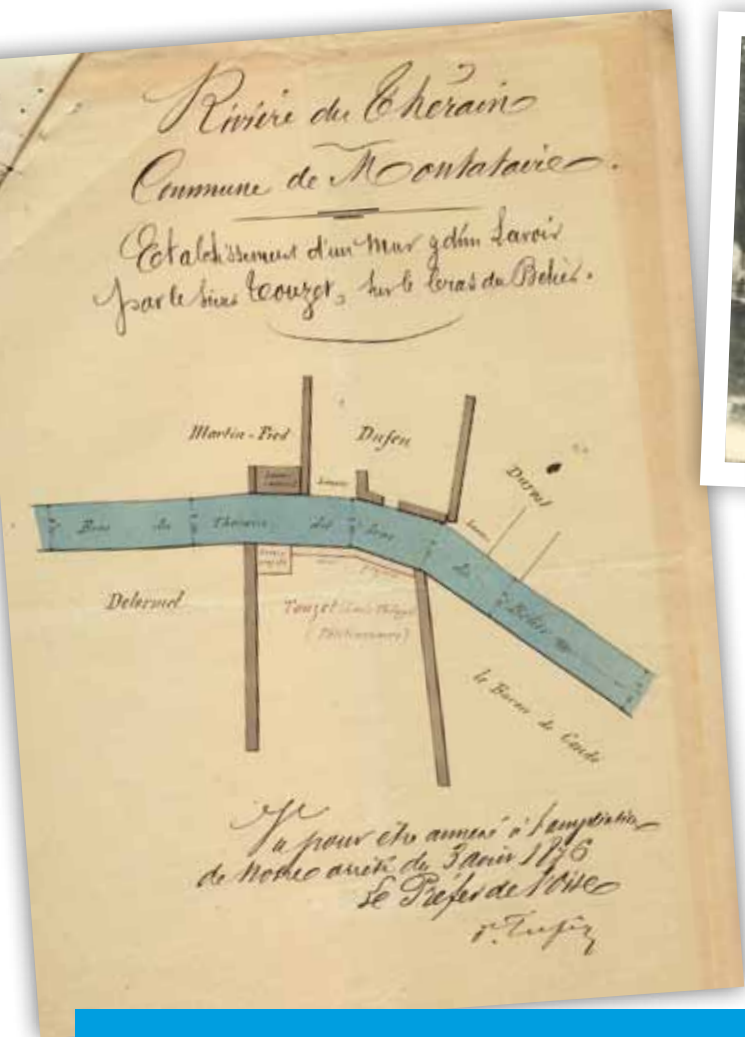 Rivière du Thérain
Commune de Montataire.
Etablissement d'un Mur & d'un Lavoir
par le Sieur Touzet, sur le bras du Bélier.
Martin-Pied
Dufeu
Bras du Thérain dit bras du Bélier
Delormel
Touzet
(Pétitionnaire)
le Baron de Condé
Vu pour être annexé à l'ampliation
de notre arrêté du 3 1876
Le Préfet de l'Oise